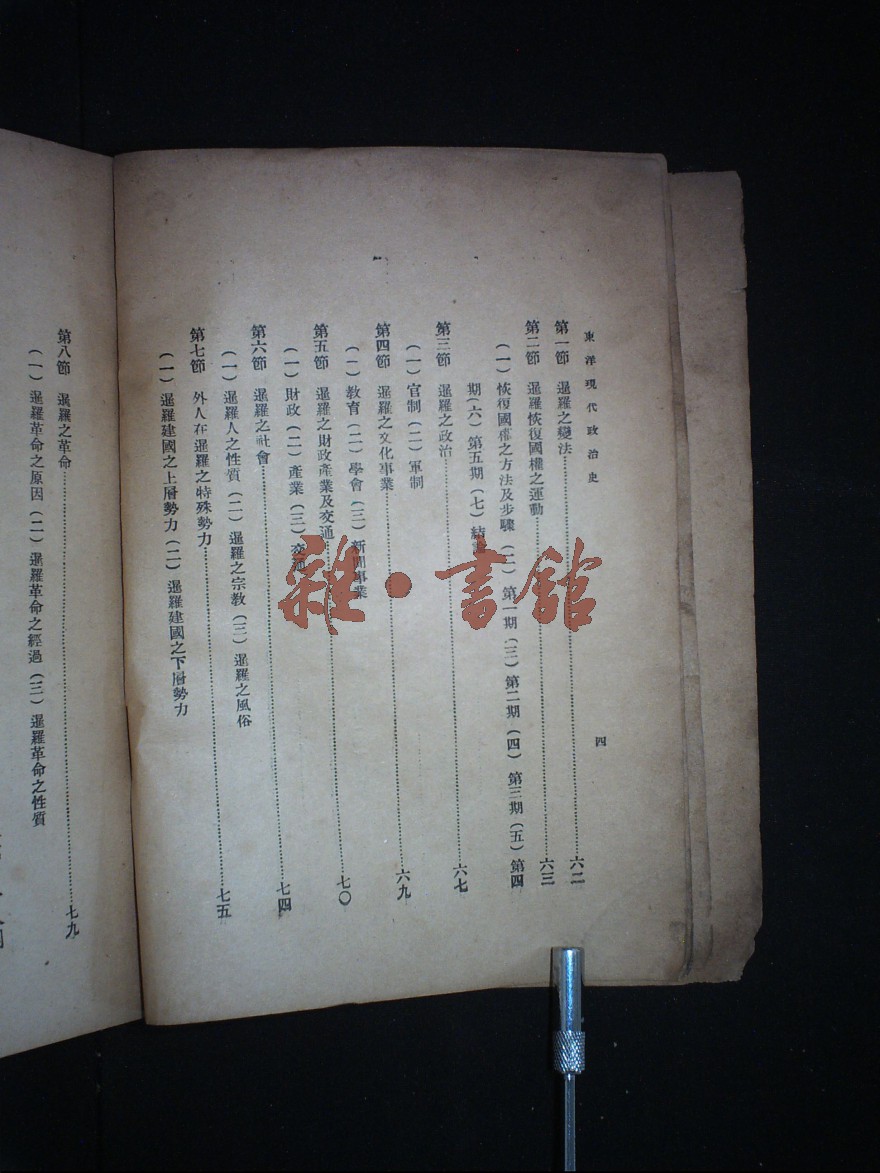 東洋現代政治史
四
第一節 暹羅之變法……六二
第二節 暹羅恢復國權之運動……六三
(一)恢復國權之方法及步驟(二)第一期(三)第二期(四)第三期(五)第四
期(六)第五期(七)結
第三節 暹羅之政治……六七
(一)官制(二)軍制
第四節 暹羅之文化事業……六九
(一)教育(二)學會(三)新聞事業
第五節 暹羅之財政產業及交通……七〇
(一)財政(二)產業(三)交通
第六節 暹羅之社會……七四
(一)暹羅人之性質(二)暹羅之宗教(三)暹羅之風俗
第七節 外人在暹羅之特殊勢力……七五
(一)暹羅建國之上層勢力(二)暹羅建國之下層勢力
第八節 暹羅之革命……七九
(一)暹羅革命之原因(二)暹羅革命之經過(三)暹羅革命之性質
雜·書館